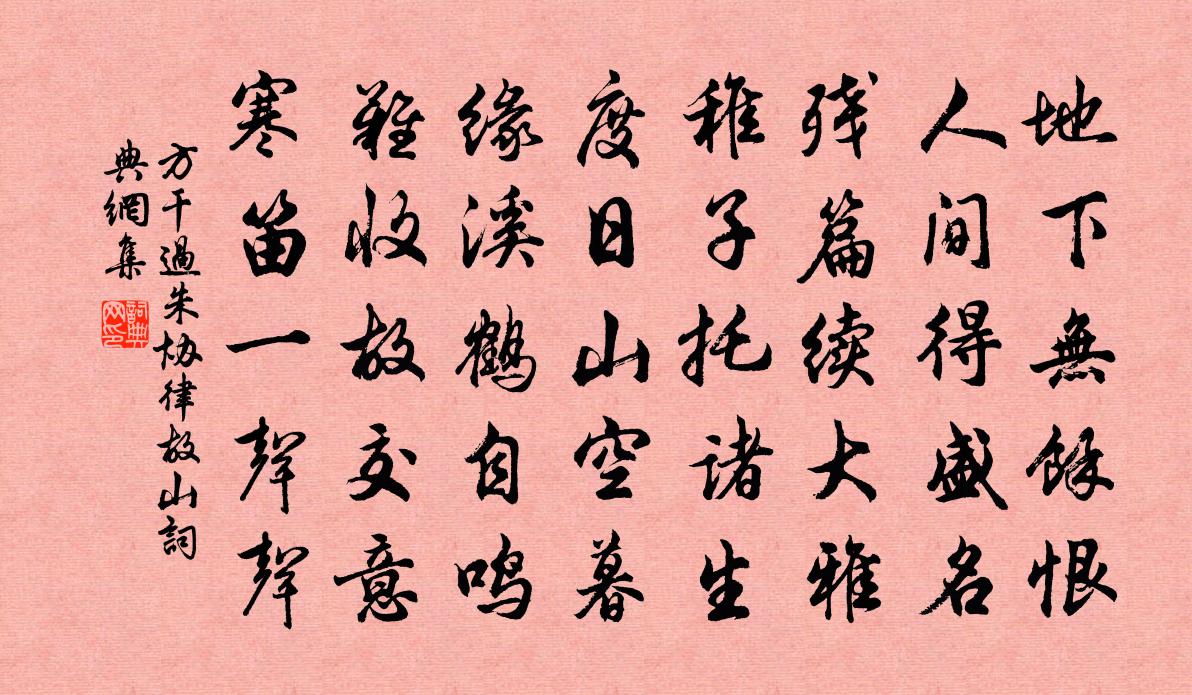 地下無餘恨
人间得盛名
残篇续大雅
稚子托諸生
度日山空暮
缘溪鹤自鸣
難收故交意
寒笛一聲聲
方干過朱协律故山詞
典網集
詞典網印